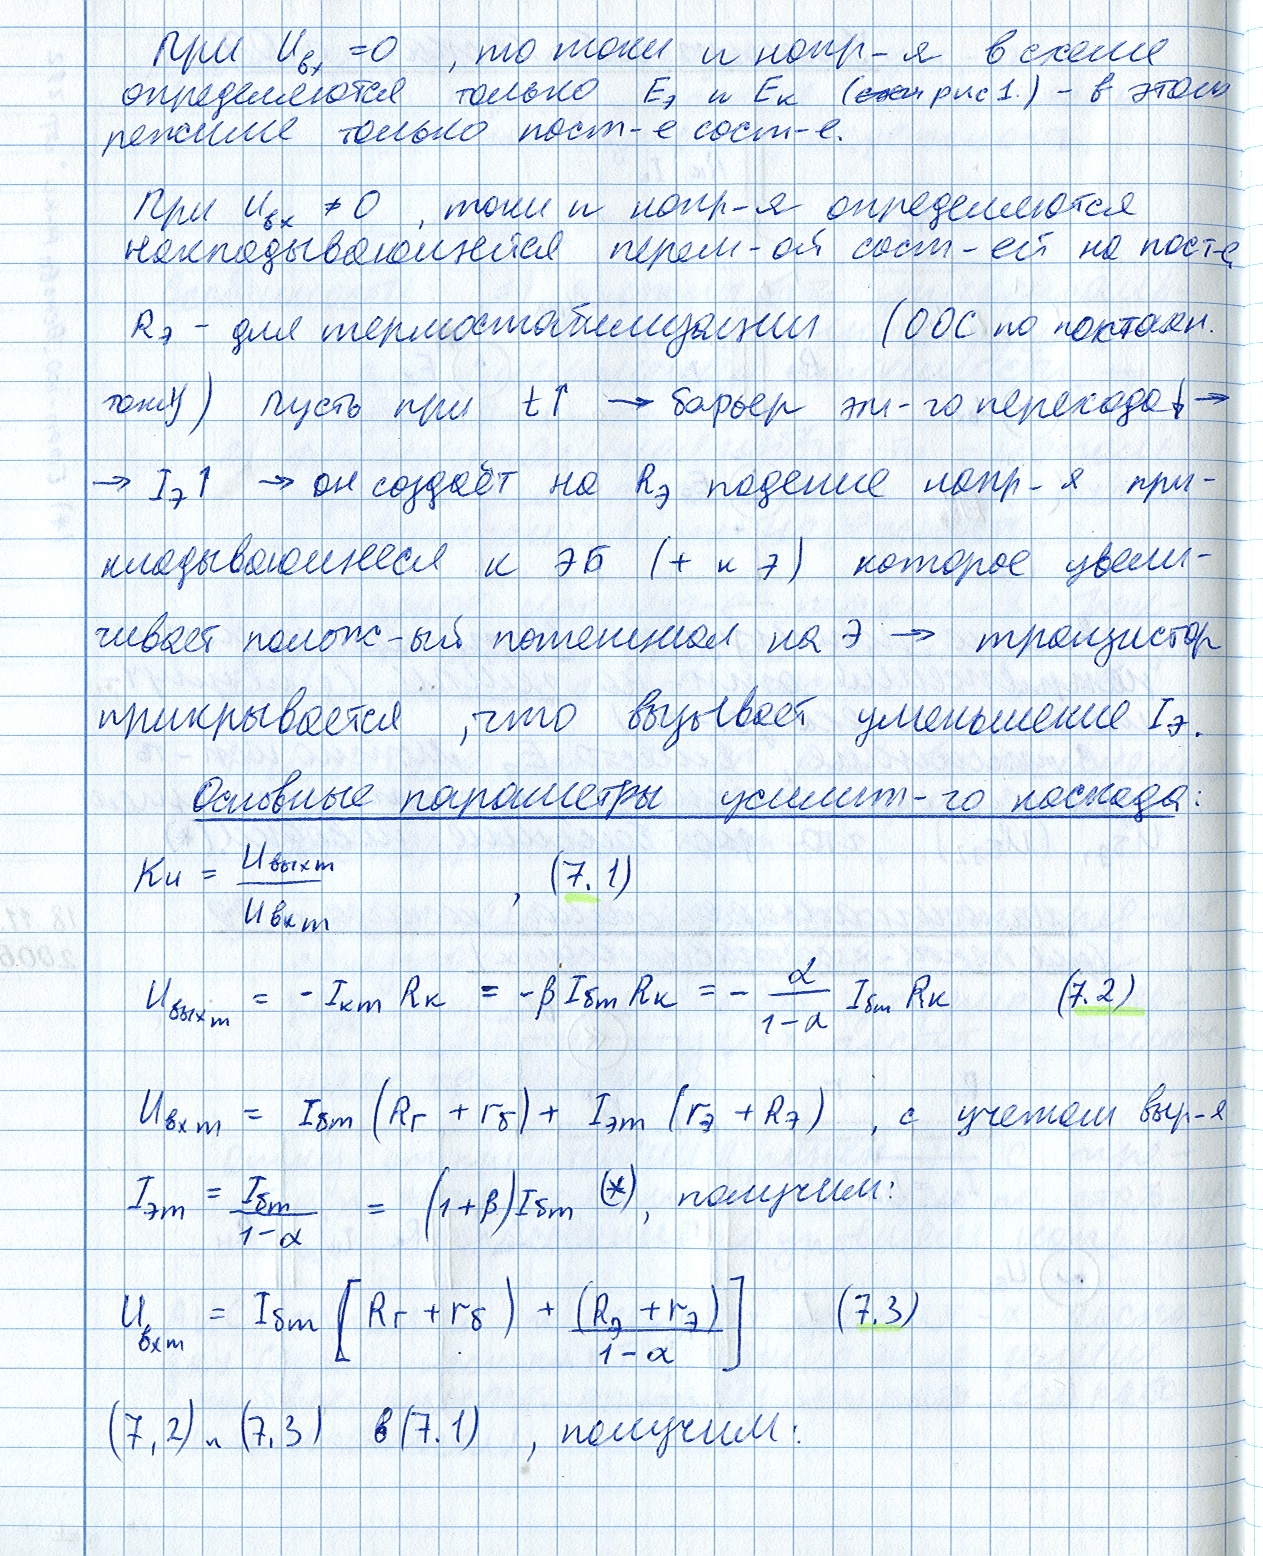 При Uвх = 0 , то токи и напр-я в схеме
определяются только Eэ и Eк (рис 1.) - в этом
режиме только пост-е сост-е.
При Uвх ≠ 0 , токи и напр-я определяются
накладывающейся перем-ой сост-ей на пост-е
Rэ - для термостабилизации (ООС по
току) Пусть при t↑ → барьер эм-го перехода↓ →
→ Iэ↑ → он создаёт на Rэ падение напр-я при-
кладывающееся к ЭБ (+ к Э) которое увели-
чивает полож-ый потенциал на Э → транзистор
прикрывается , что вызывает уменьшение Iэ.
Основные параметры усилит-го каскада:
Kи = Uвыхm / Uвхm , (7.1)
Uвыхm = - Iкm Rк = -β Iбm Rк = - α/(1-α) Iбm Rк (7.2)
Uвхm = Iбm (Rг + rб) + Iэm (rэ + Rэ) , с учетом выр-я
Iэm = Iбm/(1-α) = (1+β)Iбm (*), получим:
Uвхm = Iбm [ Rг + rб ) + (Rэ + rэ)/(1-α) ] (7.3)
(7,2) и (7,3) в (7.1) , получим: